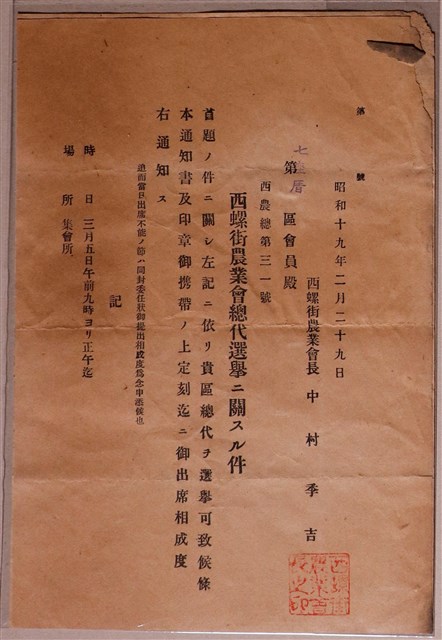 第　　號
昭和十九年二月二十九日
西螺街農業會長　中村季吉
七座厝
第　區會員殿
西農總第三一號
西螺街農業會總代選擧ニ關スル件
首題ノ件ニ關シ左記ニ依リ貴區總代ヲ選擧可致候條
本通知書及印章御携帶ノ上定刻迄ニ御出席相成度
右通知ス
追而當日出席不能ノ節ハ同封委任狀御提出相成度爲念申添候也
記
時　日　三月五日午前九時ヨリ正午迄
場　所　集會所